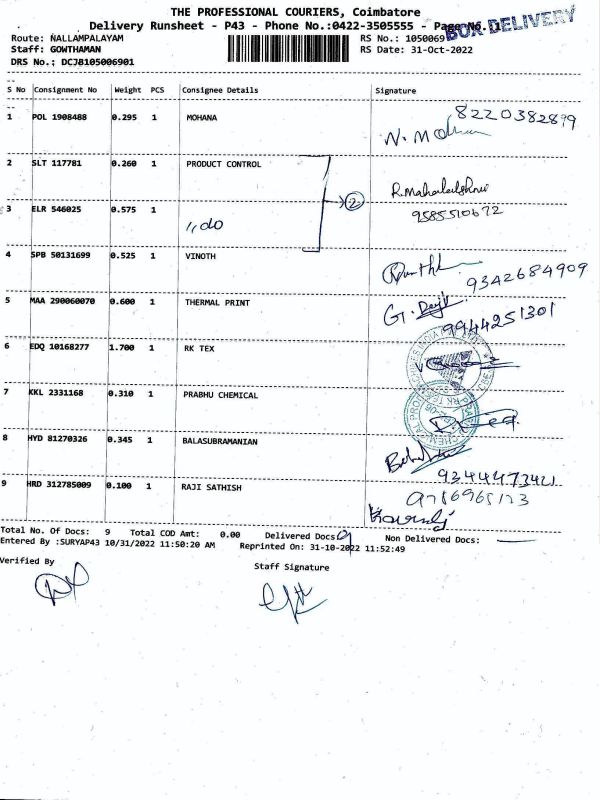 THE PROFESSIONAL COURIERS, Coimbatore
Delivery Runsheet - P43 - Phone No.:0422-3505555 - Page No. 1
BOX DELIVERY
Route: NALLAMPALAYAM RS No.: 1050069
Staff: GOWTHAMAN RS Date: 31-Oct-2022
DRS No.: DCJB105006901
S No Consignment No Weight PCS Consignee Details Signature
1 POL 1908488 0.295 1 MOHANA 8220382899
N. Mohana
2 SLT 117781 0.260 1 PRODUCT CONTROL
R. Mahalakshmi
2
3 ELR 546025 0.575 1 9585510672
,, do
4 SPB 50131699 0.525 1 VINOTH
9342684909
5 MAA 290060070 0.600 1 THERMAL PRINT
9944251301
6 EDQ 10168277 1.700 1 RK TEX
7 KKL 2331168 0.310 1 PRABHU CHEMICAL
8 HYD 81270326 0.345 1 BALASUBRAMANIAN
9344473421
9 HRD 312785009 0.100 1 RAJI SATHISH
Total No. Of Docs: 9 Total COD Amt: 0.00 Delivered Docs 9 Non Delivered Docs:
Entered By :SURYAP43 10/31/2022 11:50:20 AM Reprinted On: 31-10-2022 11:52:49
Verified By Staff Signature